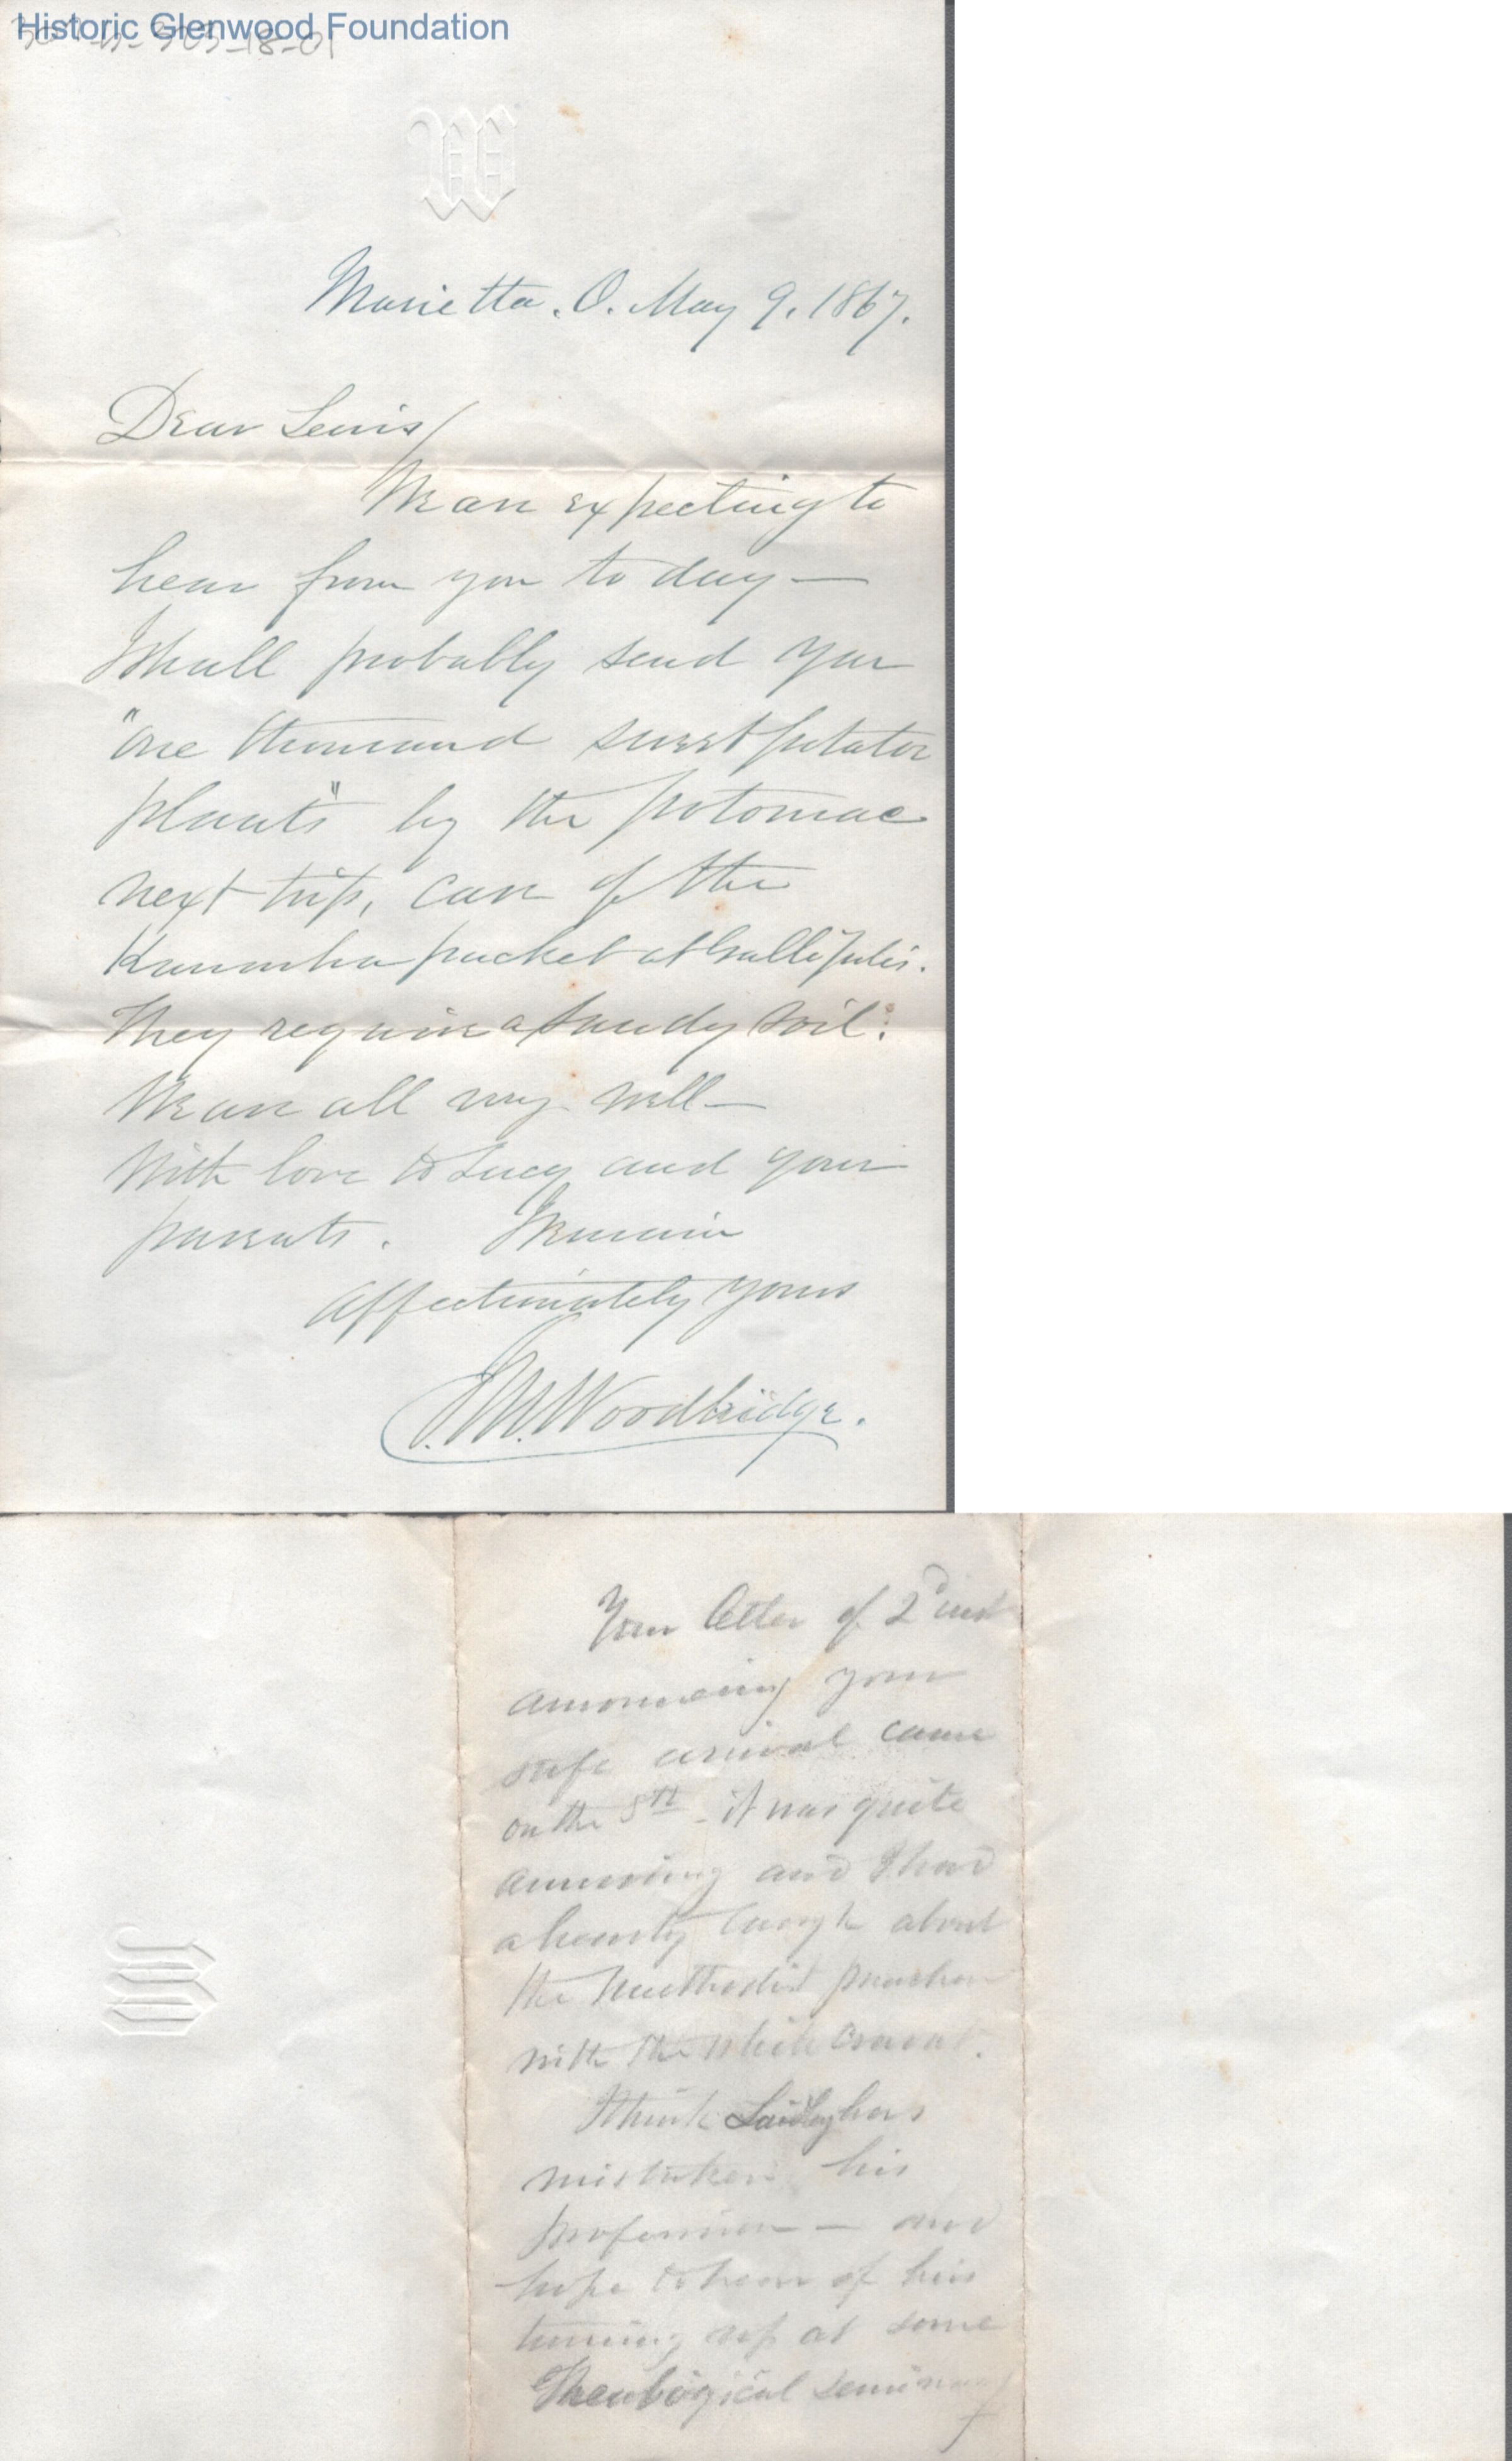 Historic Glenwood Foundation
W
Marietta. O. May 9. 1867.
Dear Lewis/
We are expecting to
hear from you to day —
I shall probably send you
"one thousand sweet potatoe
plants" by the potomac
next trip, care of the
Kanawha packet at Gallipolis.
They require a sandy soil:
We are all very well —
With love to Lucy and your
parents. I remain
affectionately yours
Woodbridge.
Your letter of 2d inst
announcing your
safe arrival came
on the 8th - it was quite
amusing and I had
a hearty laugh about
the Methodist preacher
with the white cravat.
I think Laidley has
mistaken his
profession — and
hope to hear of his
turning up at some
Theological seminary
W